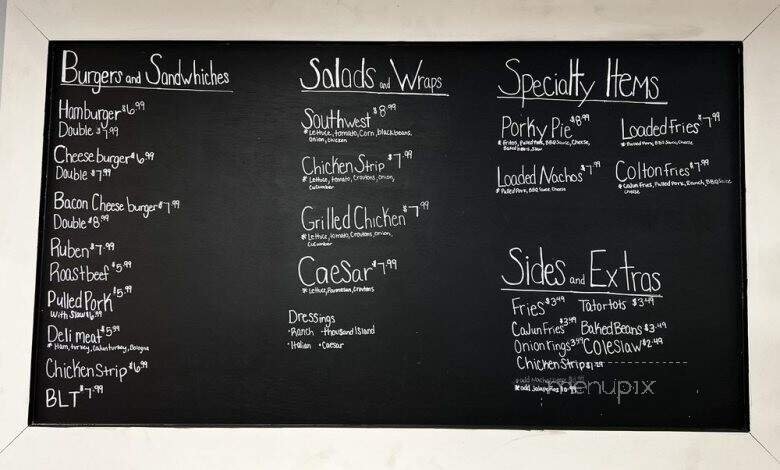 Burgers and Sandwhiches
Hamburger $6.99
Double $7.99
Cheese burger $6.99
Double $7.99
Bacon Cheese burger $7.99
Double $8.99
Ruben $7.99
Roast beef $5.99
Pulled Pork $5.99
With Slaw $6.99
Deli meat $5.99
* Ham, turkey, Cajun turkey, Bologna
Chicken Strip $6.99
BLT $7.99
Salads and Wraps
Southwest $8.99
* Lettuce, tomato, Corn, black beans,
onion, chicken
Chicken Strip $7.99
* Lettuce, tomato, Croutons, onion,
Cucumber
Grilled Chicken $7.99
* Lettuce, tomato, Croutons, onion,
Cucumber
Caesar $7.99
* Lettuce, Parmesan, Croutons
Dressings
• Ranch • thousand Island
• Italian • Caesar
Specialty Items
Porky Pie $8.99
* Fritos, Pulled Pork, BBQ Sauce, Cheese,
Baked Beans, Slaw
Loaded Fries $7.99
* Pulled Pork, BBQ Sauce, Cheese
Loaded Nachos $7.99
* Pulled Pork, BBQ Sauce, Cheese
Colton Fries $7.99
* Cajun Fries, Pulled Pork, Ranch, BBQ Sauce
Cheese
Sides and Extras
Fries $3.49 Tator tots $3.49
Cajun Fries $3.99 Baked Beans $3.49
Onion rings $3.99 Coleslaw $2.49
Chicken Strip
* add Nacho
* add Jalapeños
menupix